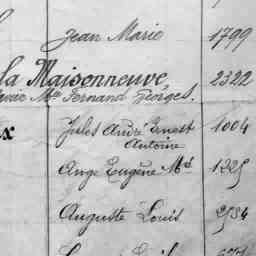 Jean Marie 1799
la Maisonneuve 2322
Marie Mce Fernand Georges.
x Jules André Ernest 1004
Antoine
Ange Eugène Md 1325
Auguste Louis 2984